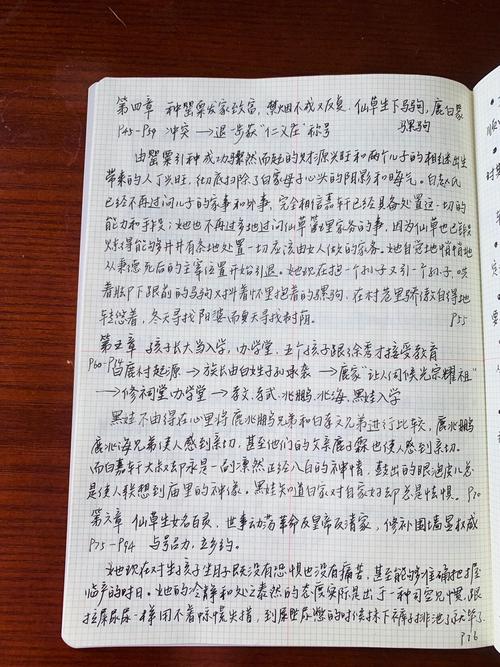 第四章 种罂粟发家致富,禁烟不成又反复,仙草生下马驹,鹿白家
P45-P59 冲突→退一步获“仁义庄”称号 骡驹
由罂粟引种成功骤然而起的财源兴旺和两个儿子的相继出生
带来的人丁兴旺,彻底扫除了白家母子心头的阴影和晦气。白赵氏
已经不再过问儿子的家事和外事,完全相信嘉轩已经具备处置这一切的
能力和手段;她也不再过多地过问仙草管理家务的事,因为仙草也已经锻
炼得能够井井有条地处置一切应该由女人做的家务。她自觉地悄悄地
从秉德死后的主宰位置开始引退。她现在抱一个孙子又引一个孙子,哄
着脚下跟前的马驹又抖着怀里抱着的骡驹,在村巷里骄傲自得地
转悠着,冬天寻找阳婆而夏天寻找树荫。 P55
第五章 孩子长大当入学,办学堂,五个孩子跟徐秀才接受教育
P60-P74 白鹿村起源→族长由白姓子孙承袭→鹿家“让人伺候光宗耀祖”
→修祠堂办学堂→孝文、孝武、兆鹏、兆海、黑娃入学
黑娃不由得在心里将鹿兆鹏兄弟和白孝文兄弟进行比较,鹿兆鹏
鹿兆海兄弟使人感到亲切,甚至他们的父亲鹿子霖也使人感到亲切。
而白嘉轩大叔却永是一副凛然正经八百的神情,鼓出的眼泡皮儿总
是使人联想到庙里的神像。黑娃知道白家对自家好却总是怯惧。 P70
第六章 仙草生女名百灵,世事动荡革命反皇帝反清家,修补围墙显权威
P75-P94 与号召力,立乡约。
她现在对生孩子坐月子既没有恐惧也没有痛苦,甚至能够准确把握
临产的时日。她的冷静和处之泰然的态度实际是出于一种司空见惯,跟
拉屎尿尿一样用不着惊慌失措,到屎憋尿憋的时候抹下裤子排泄了就毕了。
P76